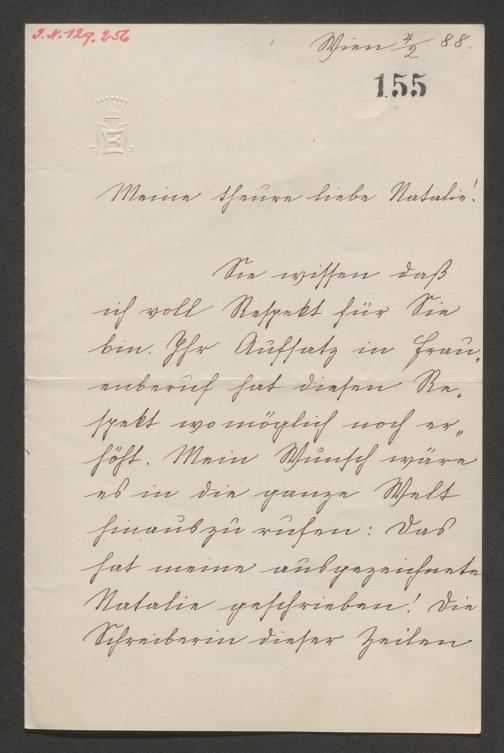 I.N. 129.256
Wien 4/2 88.
155
Meine theure liebe Natalie!
Sie wissen daß
ich voll Respekt für Sie
bin. Ihr Aufsatz in Frau„
enberuf hat diesen Re„
spekt womöglich noch er„
höht. Mein Wunsch wäre
es in die ganze Welt
hinauszu rufen: Das
hat meine ausgezeichnete
Natalie geschrieben! Die
Schreiberin dieser Zeilen